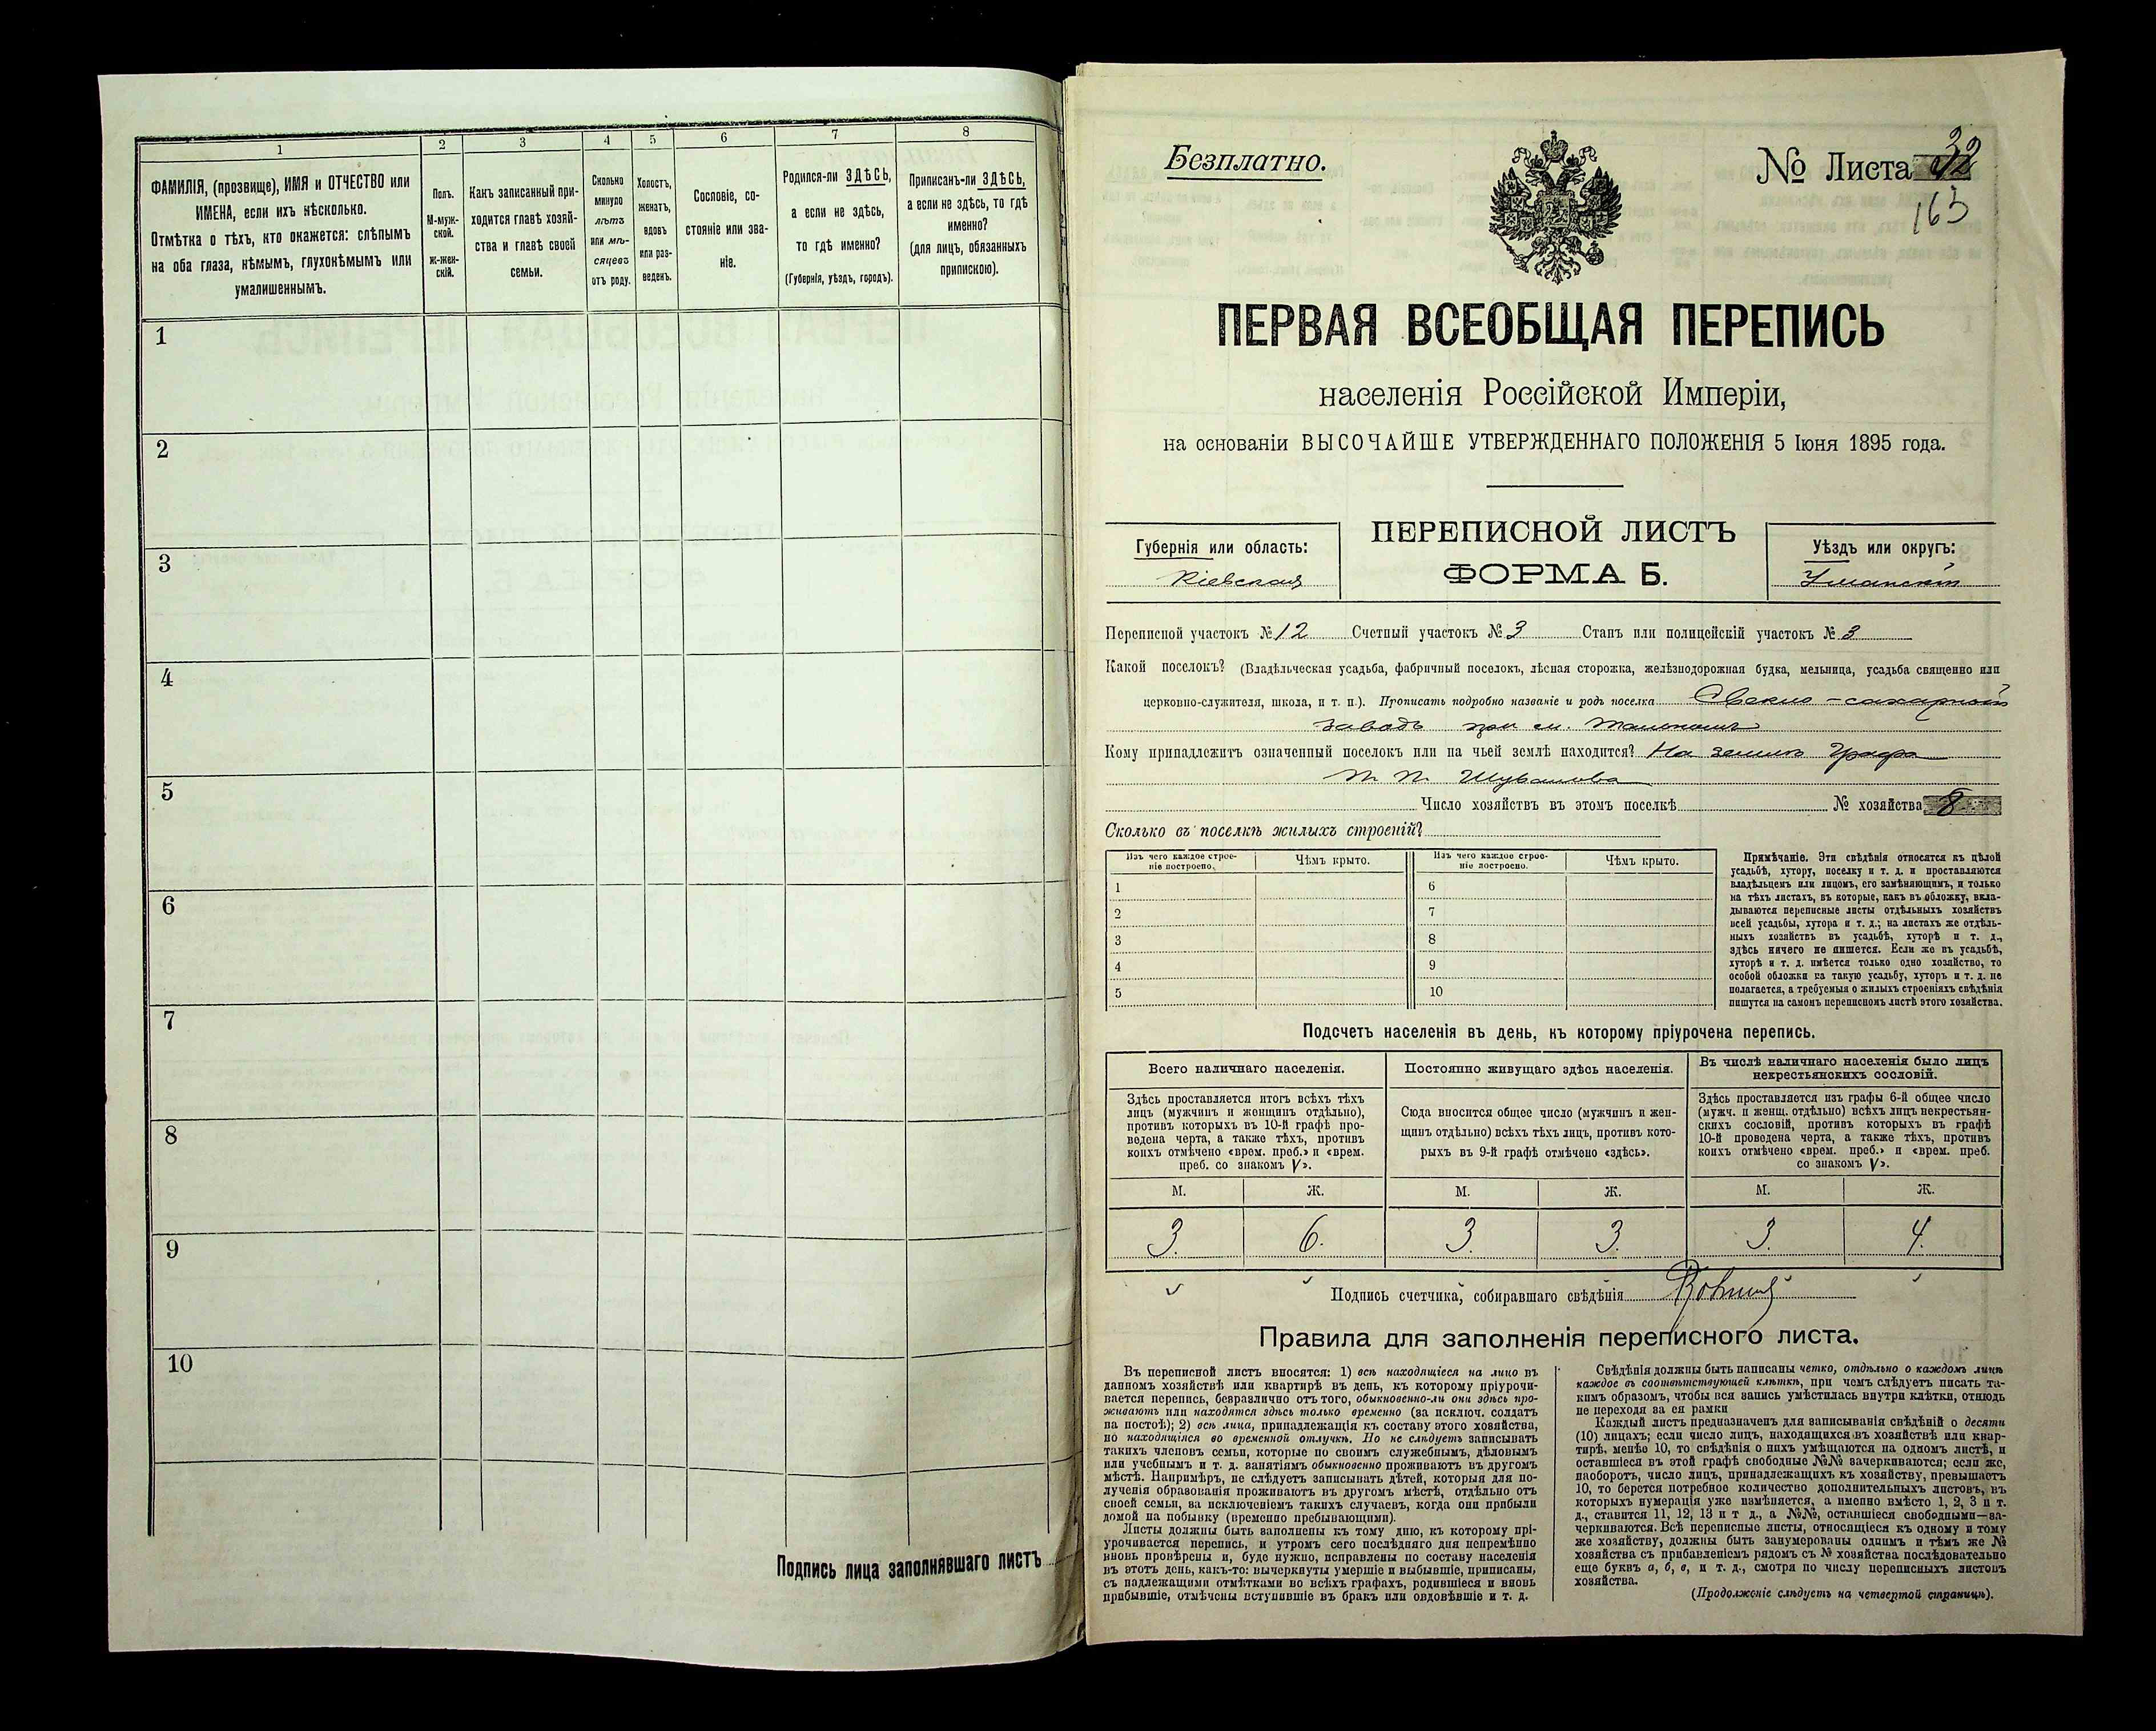 1
2
3
4
5
6
7
8
ФАМИЛІЯ, (прозвище), ИМЯ и ОТЧЕСТВО или
ИМЕНА, если ихъ нѣсколько.
Отмѣтка о тѣхъ, кто окажется: слѣпымъ
на оба глаза, нѣмымъ, глухонѣмымъ или
умалишеннымъ.
Полъ.
М-муж-
ской.
ж-жен-
скій.
Какъ записанный при-
ходится главѣ хозяй-
ства и главѣ своей
семьи.
Сколько
минуло
лѣтъ
или мѣ-
сяцевъ
отъ роду.
Холостъ,
женатъ,
вдовъ
или раз-
веденъ.
Сословіе, со-
стояніе или зва-
ніе.
Родился-ли ЗДѢСЬ,
а если не здѣсь,
то гдѣ именно?
(Губернія, уѣздъ, городъ).
Приписанъ-ли ЗДѢСЬ,
а если не здѣсь, то гдѣ
именно?
(для лицъ, обязанныхъ
припискою).
1
2
3
4
5
6
7
8
9
10
Подпись лица заполнявшаго листъ
Безплатно.
№ Листа 32
163
ПЕРВАЯ ВСЕОБЩАЯ ПЕРЕПИСЬ
населенія Россійской Имперіи,
на основаніи ВЫСОЧАЙШЕ УТВЕРЖДЕННАГО ПОЛОЖЕНІЯ 5 Іюня 1895 года.
Губернія или область:
Кіевская
ПЕРЕПИСНОЙ ЛИСТЪ
ФОРМА Б.
Уѣздъ или округъ:
Уманскій
Переписной участокъ № 12 Счетный участокъ № 3 Станъ или полицейскій участокъ № 3
Какой поселокъ? (Владѣльческая усадьба, фабричный поселокъ, лѣсная сторожка, желѣзнодорожная будка, мельница, усадьба священно или
церковно-служителя, школа, и т. п.). Прописать подробно названіе и родъ поселка Свекло-сахарный
заводъ при м. Тальномъ
Кому принадлежитъ означенный поселокъ или на чьей землѣ находится? На землѣ Графа
П. П. Шувалова
Число хозяйствъ въ этомъ поселкѣ № хозяйства 8
Сколько въ поселкѣ жилыхъ строеній?
Изъ чего каждое строе-
ніе построено.
Чѣмъ крыто.
Изъ чего каждое строе-
ніе построено.
Чѣмъ крыто.
1
2
3
4
5
6
7
8
9
10
Примѣчаніе. Эти свѣдѣнія относятся къ цѣлой
усадьбѣ, хутору, поселку и т. д. и проставляются
владѣльцемъ или лицомъ, его замѣняющимъ, и только
на тѣхъ листахъ, въ которые, какъ въ обложку, вкла-
дываются переписные листы отдѣльныхъ хозяйствъ
всей усадьбы, хутора и т. д.; на листахъ же отдѣль-
ныхъ хозяйствъ въ усадьбѣ, хуторѣ и т. д.,
здѣсь ничего не пишется. Если же въ усадьбѣ,
хуторѣ и т. д. имѣется только одно хозяйство, то
особой обложки на такую усадьбу, хуторъ и т. д. не
полагается, а требуемыя о жилыхъ строеніяхъ свѣдѣнія
пишутся на самомъ переписномъ листѣ этого хозяйства.
Подсчетъ населенія въ день, къ которому пріурочена перепись.
Всего наличнаго населенія.
Здѣсь проставляется итогъ всѣхъ тѣхъ
лицъ (мужчинъ и женщинъ отдѣльно),
противъ которыхъ въ 10-й графѣ про-
ведена черта, а также тѣхъ, противъ
коихъ отмѣчено «врем. преб.» и «врем.
преб. со знакомъ V».
Постоянно живущаго здѣсь населенія.
Сюда вносится общее число (мужчинъ и жен-
щинъ отдѣльно) всѣхъ тѣхъ лицъ, противъ кото-
рыхъ въ 9-й графѣ отмѣчено «здѣсь».
Въ числѣ наличнаго населенія было лицъ
некрестьянскихъ сословій.
Здѣсь проставляется изъ графы 6-й общее число
(мужч. и женщ. отдѣльно) всѣхъ лицъ некрестьян-
скихъ сословій, противъ которыхъ въ графѣ
10-й проведена черта, а также тѣхъ, противъ
коихъ отмѣчено «врем. преб.» и «врем. преб.
со знакомъ V».
М. Ж. М. Ж. М. Ж.
3. 6. 3. 3. 3. 4.
Подпись счетчика, собиравшаго свѣдѣнія
Правила для заполненія переписного листа.
Въ переписной листъ вносятся: 1) всѣ находящіеся на лицо въ
данномъ хозяйствѣ или квартирѣ въ день, къ которому пріурочи-
вается перепись, безразлично отъ того, обыкновенно-ли они здѣсь про-
живаютъ или находятся здѣсь только временно (за исключ. солдатъ
на постоѣ); 2) всѣ лица, принадлежащія къ составу этого хозяйства,
но находящіяся во временной отлучкѣ. Но не слѣдуетъ записывать
такихъ членовъ семьи, которые по своимъ служебнымъ, дѣловымъ
или учебнымъ и т. д. занятіямъ обыкновенно проживаютъ въ другомъ
мѣстѣ. Напримѣръ, не слѣдуетъ записывать дѣтей, которыя для по-
лученія образованія проживаютъ въ другомъ мѣстѣ, отдѣльно отъ
своей семьи, за исключеніемъ такихъ случаевъ, когда они прибыли
домой на побывку (временно пребывающими).
Листы должны быть заполнены къ тому дню, къ которому прі-
урочивается перепись, и утромъ сего послѣдняго дня непремѣнно
вновь провѣрены и, буде нужно, исправлены по составу населенія
въ этотъ день, какъ-то: вычеркнуты умершіе и выбывшіе, приписаны,
съ надлежащими отмѣтками во всѣхъ графахъ, родившіеся и вновь
прибывшіе, отмѣчены вступившіе въ бракъ или овдовѣвшіе и т. д.
Свѣдѣнія должны быть написаны четко, отдѣльно о каждомъ лицѣ
каждое въ соотвѣтствующей клѣткѣ, при чемъ слѣдуетъ писать та-
кимъ образомъ, чтобы вся запись умѣстилась внутри клѣтки, отнюдь
не переходя за ея рамки
Каждый листъ предназначенъ для записыванія свѣдѣній о десяти
(10) лицахъ; если число лицъ, находящихся въ хозяйствѣ или квар-
тирѣ, менѣе 10, то свѣдѣнія о нихъ умѣщаются на одномъ листѣ, и
оставшіеся въ этой графѣ свободные №№ зачеркиваются; если же,
наоборотъ, число лицъ, принадлежащихъ къ хозяйству, превышаетъ
10, то берется потребное количество дополнительныхъ листовъ, въ
которыхъ нумерація уже измѣняется, а именно вмѣсто 1, 2, 3 и т.
д., ставится 11, 12, 13 и т д., а №№, оставшіеся свободными—за-
черкиваются. Всѣ переписные листы, относящіеся къ одному и тому
же хозяйству, должны быть занумерованы однимъ и тѣмъ же №
хозяйства съ прибавленіемъ рядомъ съ № хозяйства послѣдовательно
еще буквъ а, б, в, и т. д., смотря по числу переписныхъ листовъ
хозяйства.
(Продолженіе слѣдуетъ на четвертой страницѣ).